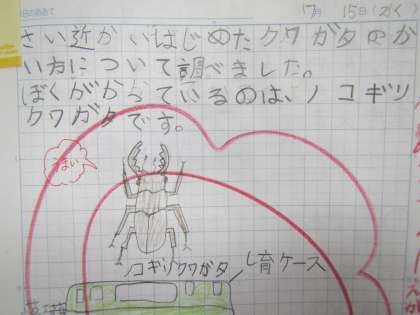 7月 15日(水)
さい近かいはじめたクワガタのか
い方について調べました。
ぼくがかっているのは、ノコギリ
クワガタです。
はい
ノコギリクワガタ
し育ケース